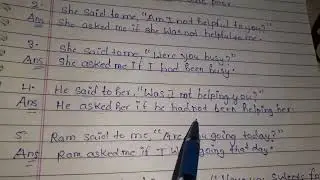 2. She said to me, "Am I not helpful to you?"
Ans She said to me if she was not helpful to me.
3. She said to me, "Were you busy?"
Ans She asked me if I had been busy.
4. He said to her, "Was I not helping you?"
Ans He asked her if he had not been helping her.
5. Ram said to me, "Are you going today?"
Ans Ram asked me if I was going that day.
"Have you